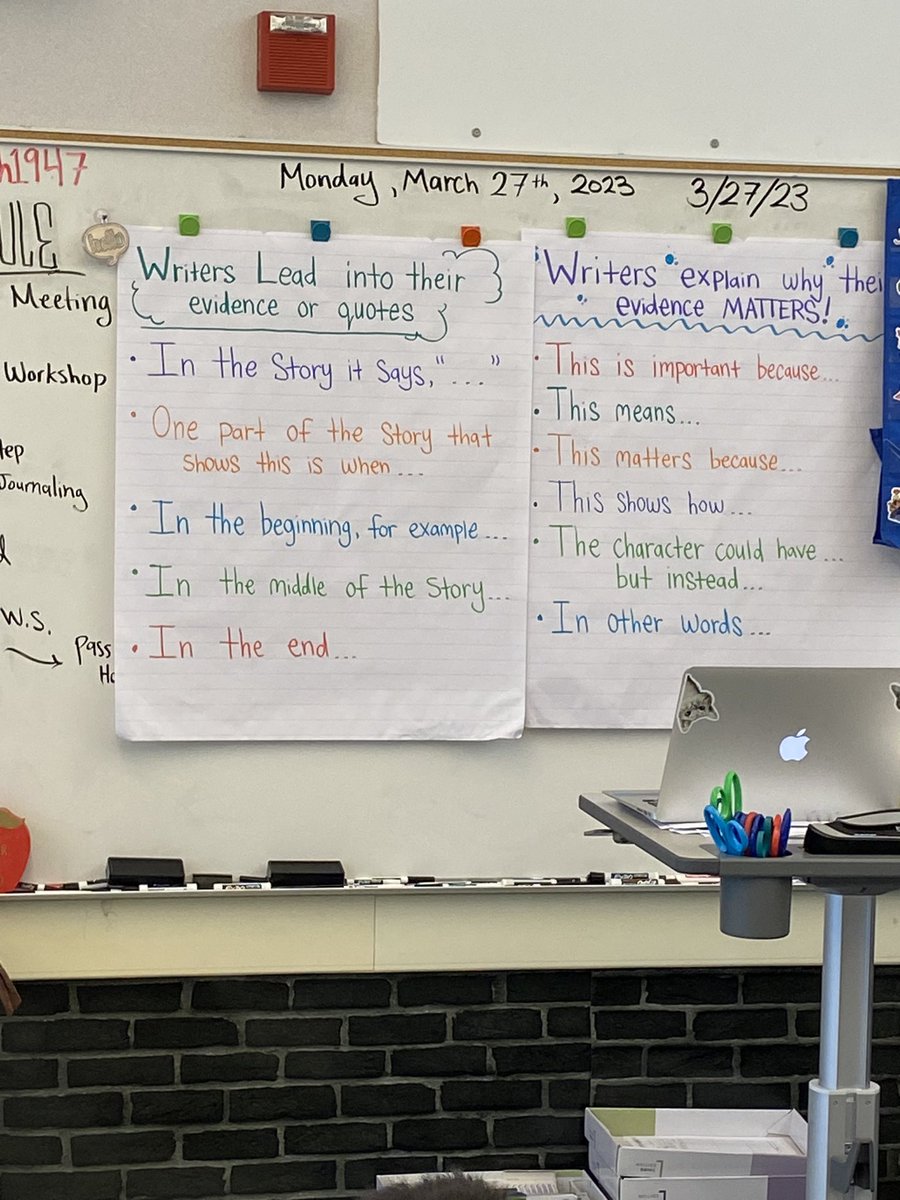 Monday, March 27th, 2023 3/27/23
h1947
ULE
Meeting
Workshop
tep
Journaling
W.S.
Pass
hello
Writers Lead into their
evidence or quotes
• In the Story it Says, "..."
• One part of the Story that
shows this is when...
• In the beginning, for example...
• In the middle of the Story...
• In the end...
Writers explain why thei
evidence MATTERS!
• This is important because...
• This means...
• This matters because...
• This shows how...
• The character could have...
but instead...
• In other words...